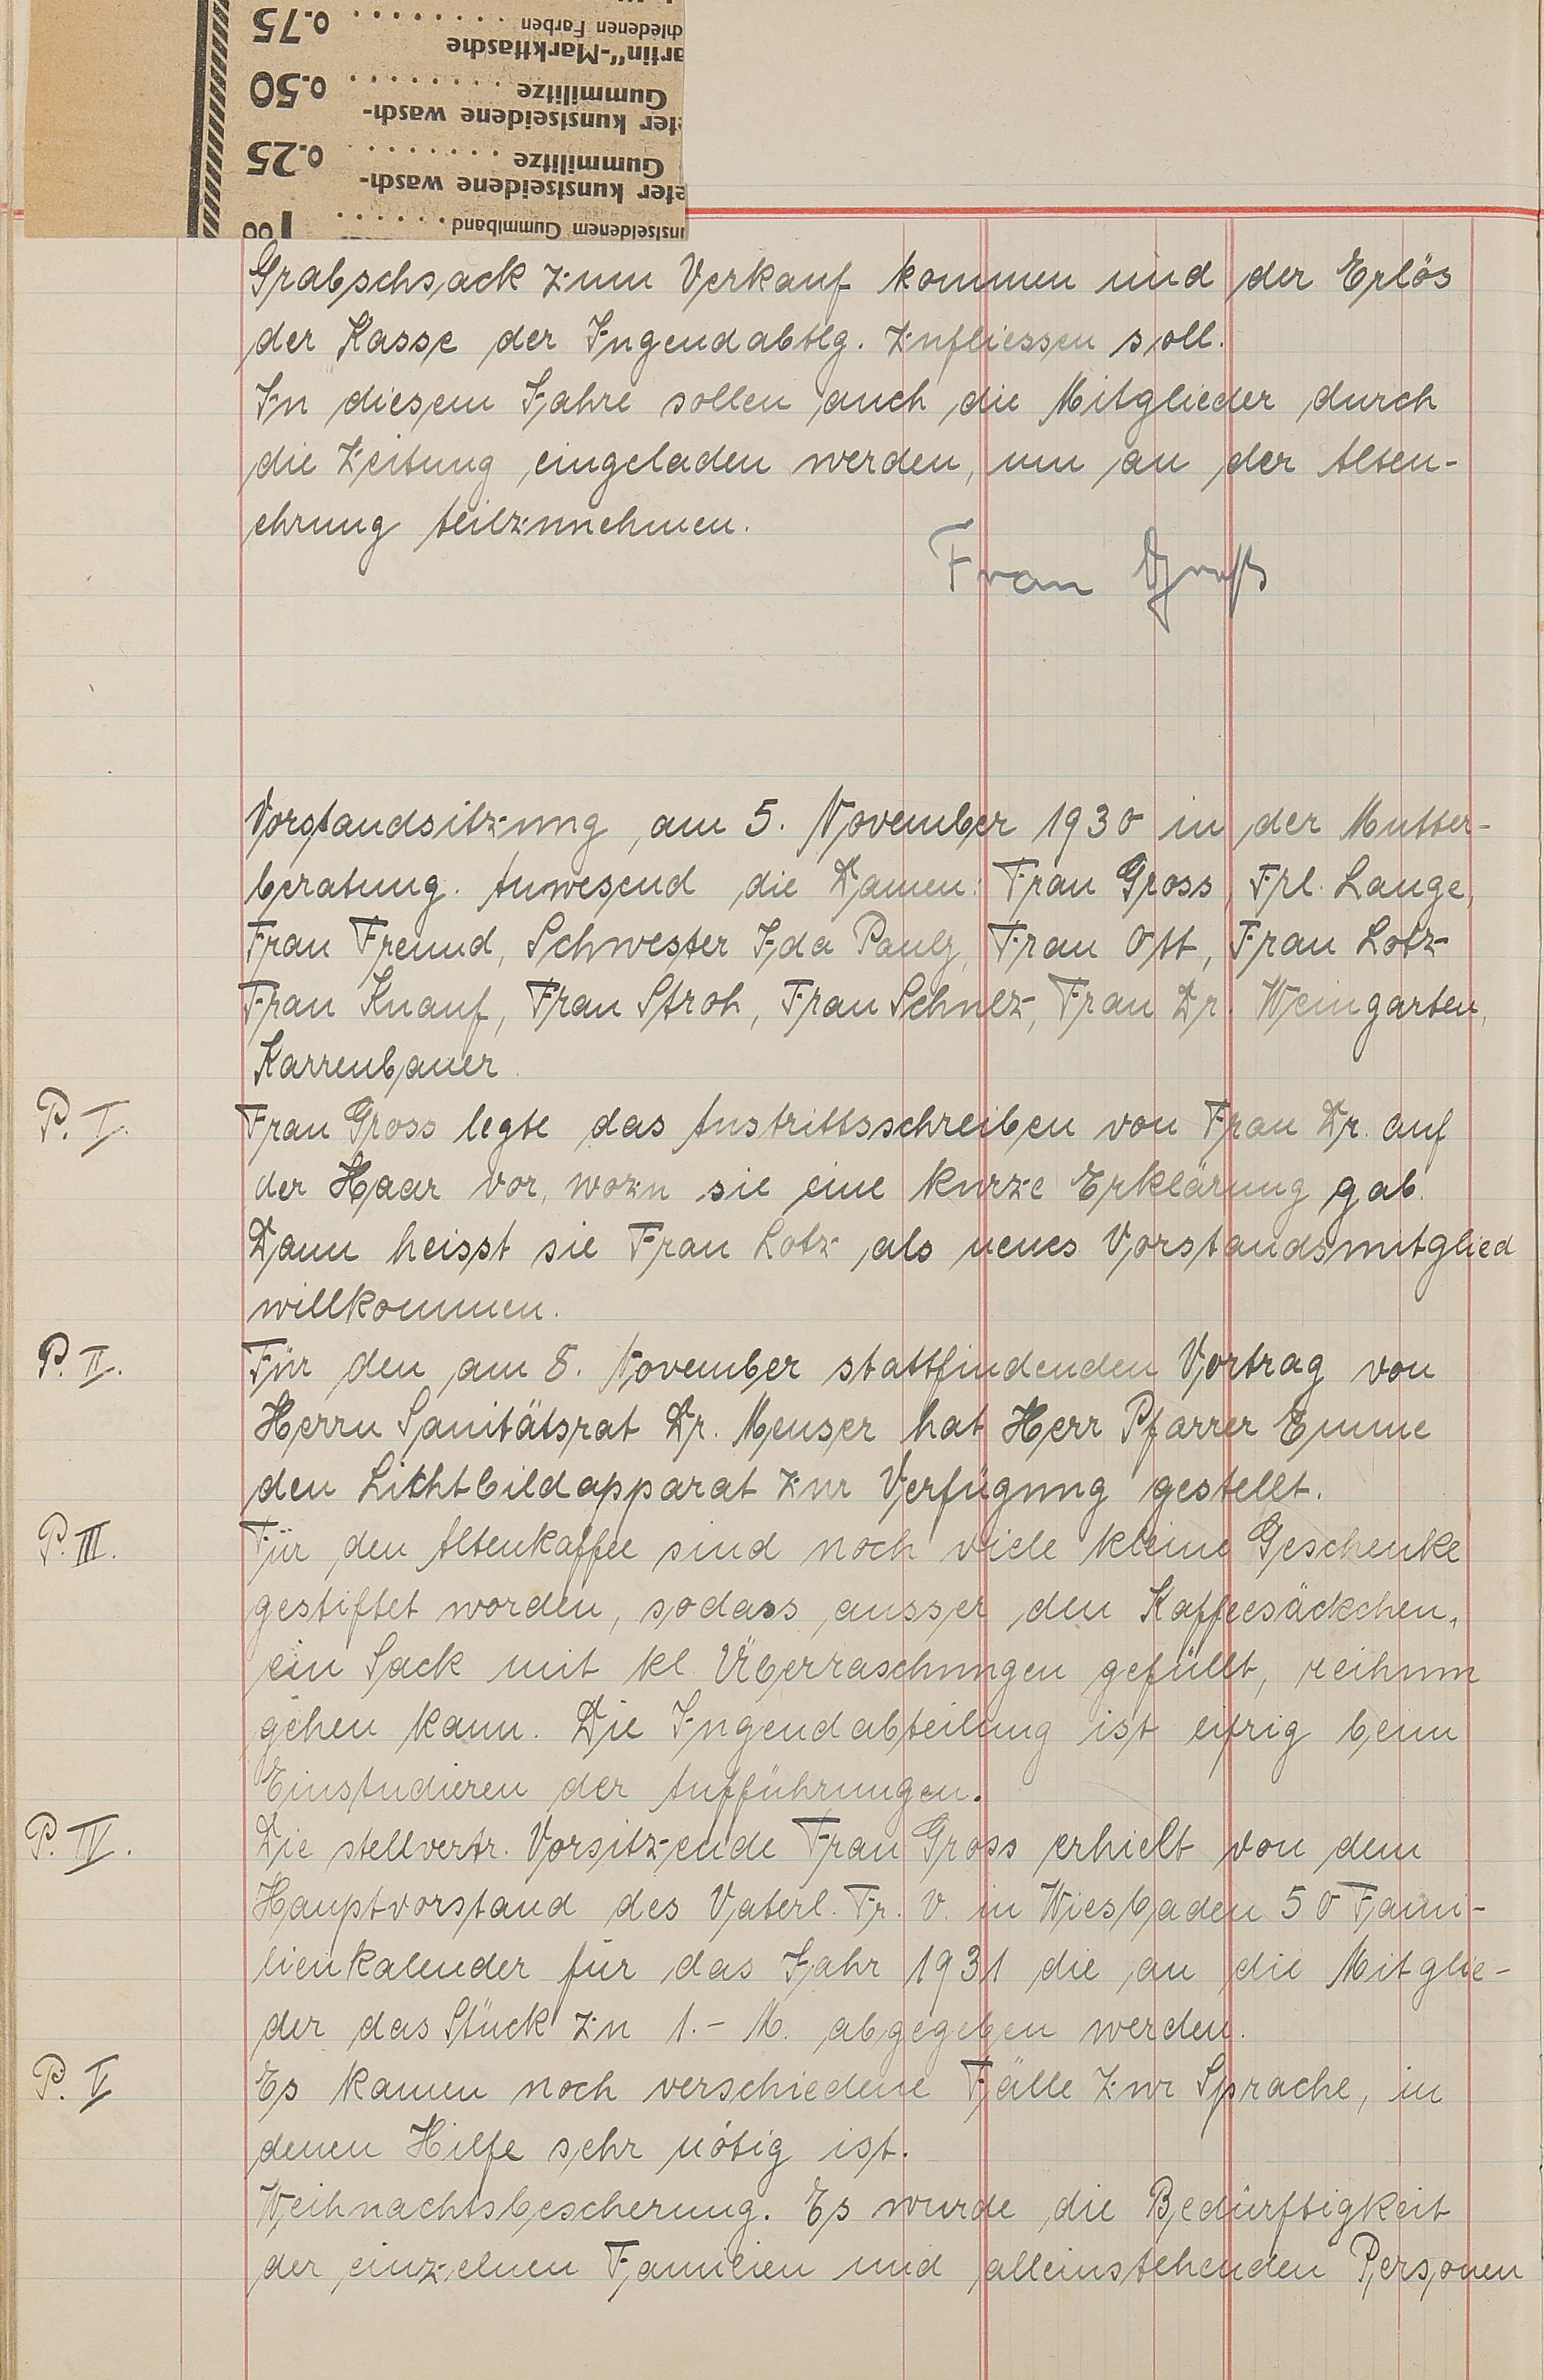 chiedenen Farben . . . . . . . . 0.75
artin"-Markttasche
Gummilitze . . . . . . . . . 0.50
ter kunstseidene wasch-
Gummilitze . . . . . . . . 0.25
eter kunstseidene wasch-
nstseidenem Gummiband . . . . . .
Grabschsack zum Verkauf kommen und der Erlös
der Kasse der Jugendabtlg. zufliessen soll.
In diesem Jahre sollen auch die Mitglieder durch
die Zeitung eingeladen werden, um an der Alten-
ehrung teilzunehmen.
Frau Groß
Vorstandsitzung am 5. November 1930 in der Mutter-
beratung. Anwesend die Damen: Frau Gross, Frl. Lange,
Frau Freund, Schwester Ida Pauly, Frau Ott, Frau Lotz
Frau Knauf, Frau Stroh, Frau Schulz, Frau Dr. Weingarten,
Karrenbauer.
P. I. Frau Gross legte das Austrittsschreiben von Frau Dr. auf
der Haar vor, wozu sie eine kurze Erklärung gab.
Dann heisst sie Frau Lotz als neues Vorstandsmitglied
willkommen.
P. II. Für den am 8. November stattfindenden Vortrag von
Herrn Sanitätsrat Dr. Menser hat Herr Pfarrer Emme
den Lichtbildapparat zur Verfügung gestellt.
P. III. Für den Altenkaffee sind noch viele kleine Geschenke
gestiftet worden, sodass ausser den Kaffeesäckchen,
ein Sack mit kl. Überraschungen gefüllt, reihum
gehen kann. Die Jugendabteilung ist eifrig beim
Einstudieren der Aufführungen.
P. IV. Die stellvertr. Vorsitzende Frau Gross erhielt von dem
Hauptvorstand des Vaterl. Fr. V. in Wiesbaden 50 Fami-
lienkalender für das Jahr 1931 die an die Mitglie-
der das Stück zu 1.- M. abgegeben werden.
P. V Es kamen noch verschiedene Fälle zur Sprache, in
denen Hilfe sehr nötig ist.
Weihnachtsbescherung. Es wurde die Bedürftigkeit
der einzelnen Familien und alleinstehenden Personen